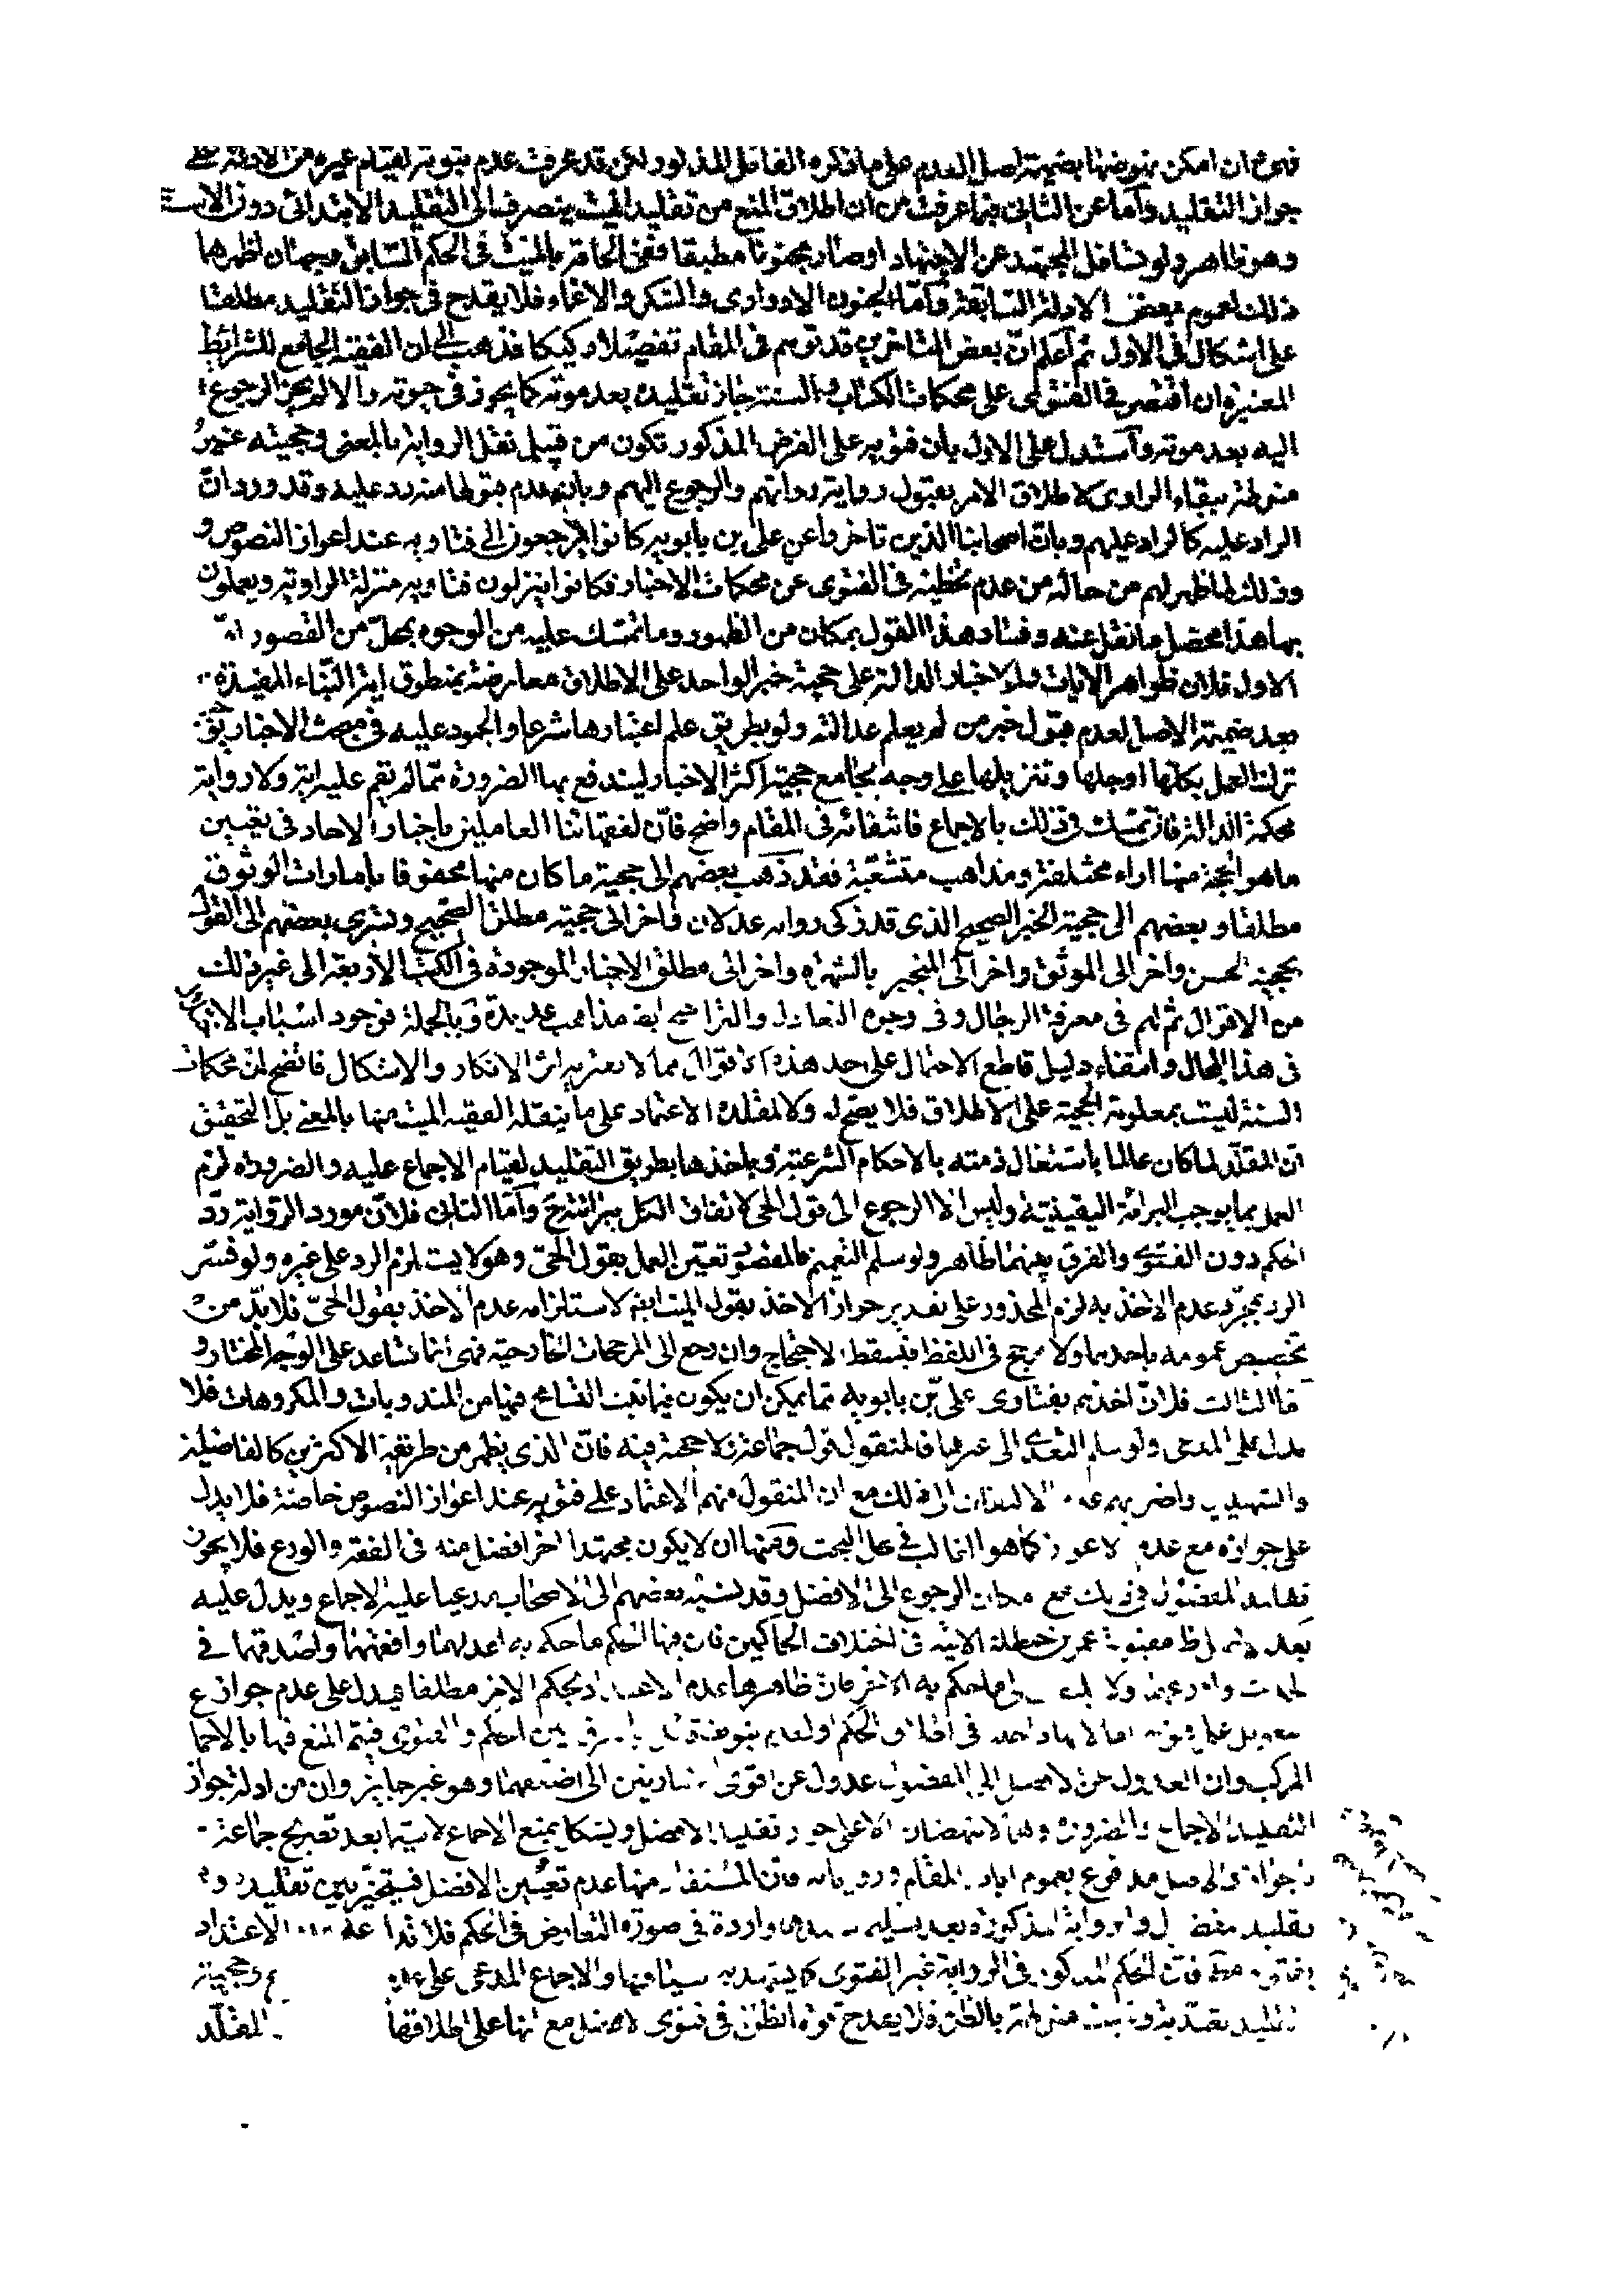 فهو ان امكن نهوضها بضميمة اصل العدم على ما ذكره الفاضل المذكور لكن قد عرفت عدم ثبوته لقيام غيره من الادلة على
جواز التقليد وامّا عن الثانى فبما عرفت من ان اطلاق المنع من تقليد الميّت ينصرف الى التقليد الابتدائى دون
وهو ظاهر ولو تنافل المجتهد عن الاجتهاد او صار مجنونا مطبقا ففى الحاقه بالميّت فى الحكم السّابق وجهان اظهرهما
ذلك لعموم بعض الادلة السّابقة وامّا الجنون الادوارى والسّكر والاغماء فلا يقدح فى جواز التقليد مطلقا
على اشكال فى الاول ثم اعلم انّ بعض المتاخرين قد توهم فى المقام تفصيلا ركيكا فذهب الى ان الفقيه الجامع للشرائط
المعتبرة ان اقتصر فى الفتوى على محكمات الكتاب والسنة جاز تقليده بعد موته كما يجوز فى حيوته والا لم يجز الرجوع
اليه بعد موته واستدل على الاول بان فتويه على الفرض المذكور تكون من قبيل نقل الرواية بالمعنى وحجيته غير
مشروطة ببقاء الراوى لاطلاق الامر بقبول رواية رواتهم والرجوع اليهم وبان عدم قبولها منه رد عليه وقد ورد انّ
الراد عليه كالراد عليهم وبانّ اصحابنا الذين تاخروا عن على بن بابويه كانوا يرجعون الى فتاويه عند اعواز النصوص و
وذلك لما ظهر لهم من حاله من عدم تخطيه فى الفتوى عن محكمات الاخبار فكانوا ينزلون فتاويه منزلة الرواية ويعملون
بها هذا محصل ما نقل عنه وفساد هذا القول بمكان من الظهور وما تمسّك عليه من الوجوه بمحلّ من القصور امّا
الاول فلان ظواهر الايات والاخبار الدالة على حجية خبر الواحد على الاطلاق معارضة بمنطوق اية النّباء المفيدة
بعد ضميمة الاصل لعدم قبول خبر من لم يعلم عدالته ولو بطريق علم اعتبارها شرعا والجمود عليه فى مبحث الاخبار يوجب
ترك العمل بكلّها او جلها وتنزيلها على وجه يجامع حجية اكثر الاخبار ليندفع بها الضرورة ممّا لم يقم عليه اية ولا رواية
محكمة الدالة فان تمسّك فى ذلك بالاجماع فانتفائه فى المقام واضح فانّ لفقهائنا العاملين باخبار الاحاد فى تعيين
ما هو الحجة منها اراء مختلفة ومذاهب متشعّبة فقد ذهب بعضهم الى حجية ما كان منها محفوفا بامارات الوثوق
مطلقا وبعضهم الى حجية الخبر الصحيح الذى قد زكى رواته عدلان واخر الى حجية مطلق الصّحيح وتسرى بعضهم الى القول
بحجية الحسن واخر الى الموثّق واخر الى المنجبر بالشهرة واخر الى مطلق الاخبار الموجودة فى الكتب الاربعة الى غير ذلك
من الاقوال ثم لهم فى معرفة الرجال وفى وجوه التعادل والتراجيح ايضا مذاهب عديدة وبالجملة فوجود اسباب
فى هذا المجال وانتفاء دليل قاطع الاحتمال على احد هذه الاقوال مما لا يعتريه اثر الانكار والاشكال فاتضح انّ محكمات
السنة ليست بمعلومة الحجية على الاطلاق فلا يصحّ له ولا لمقلده الاعتماد على ما ينقله الفقيه الميت منها بالمعنى بل التحقيق
انّ المقلّد لما كان عالما باشتغال ذمته بالاحكام الشرعيّة وباخذها بطريق التقليد لقيام الاجماع عليه والضرورة لزم
العمل بما يوجب البرائة اليقينيّة وليس الا الرجوع الى قول الحى لاتفاق الكل وامّا الثانى فلانّ مورد الرّواية ردّ
الحكم دون الفتوى والفرق بينهما ظاهر ولو سلم التعميم فالمفروض تعيّن العمل بقول الحىّ وهو لا يستلزم الرد على غيره ولو فسّر
الرد بمجرّد عدم الاخذ به لزم المحذور على تقدير جواز الاخذ بقول الميّت ايضا لاستلزامه عدم الاخذ بقول الحىّ فلا بدّ من
تخصيص عمومه باحدهما ولا مرجح فى اللفظ فيسقط الاحتجاج وان رجع الى المرجحات الخارجية فهى انما تساعد على الوجه المختار و
امّا الثالث فلانّ اخذهم بفتاوى على بن بابويه ممّا يمكن ان يكون فيما ثبت التسامح فيها من المندوبات والمكروهات فلا
يدل على المدعى ولو سلم التعدى الى غيرها فالمنقول قول جماعة لا حجة فيه فانّ الذى يظهر من طريقة الاكثرين كالفاضلين
والشهيدين واضرابهم عدم الالتفات الى ذلك مع ان المنقول منهم الاعتماد على فتويه عند اعواز النصوص خاصّة فلا يدل
على جوازه مع عدم الاعواز كما هو الغالب فى محل البحث ومنها ان لا يكون مجتهدا اخر افضل منه فى الفقه والورع فلا يجوز
تقليد المفضول مع امكان الرجوع الى الافضل وقد نسبه بعضهم الى الاصحاب مدعيا عليه الاجماع ويدل عليه
بعد مقبولة عمر بن حنظلة الاتية فى اختلاف الحاكمين فان فيها الحكم ما حكم به اعدلهما وافقههما واصدقهما فى
الحديث واورعهما ولا يلتفت الى ما يحكم به الاخر فان ظاهرها عدم الاعتداد بحكم الاخر مطلقا فيدل على عدم جواز
التعويل على فتويه فى الحكم او لعدم بين الحكم والفتوى فيتم المنع فيها بالاجماع
المركب وان العدول عن الافضل الى المفضول عدول عن اقوى الامارتين الى اضعفهما وهو غير جايز وان من ادلة جواز
التقليد الاجماع والضرورة وهما لا ينهضان الا على جواز تقليد الافضل ويشكل بمنع الاجماع لا سيّما بعد تصريح جماعة
بجوازه مدفوع بعموم المقام فانّ المستفاد منها عدم تعيّين الافضل فيتخيّر بين تقليده و
تقليد المفضول والرواية المذكورة بعد تسليم سندها واردة فى صورة التعارض فى الحكم فلا الاعتداد
فانّ الحكم المذكور فى الرواية غير الفتوى كما يشهد به سياقها والاجماع المدعى على وحجية
التقليد تعبّدية وليست منوطة بالظن فلا يقدح قوة الظن فى فتوى الافضل مع انها على اطلاقها المقلّد